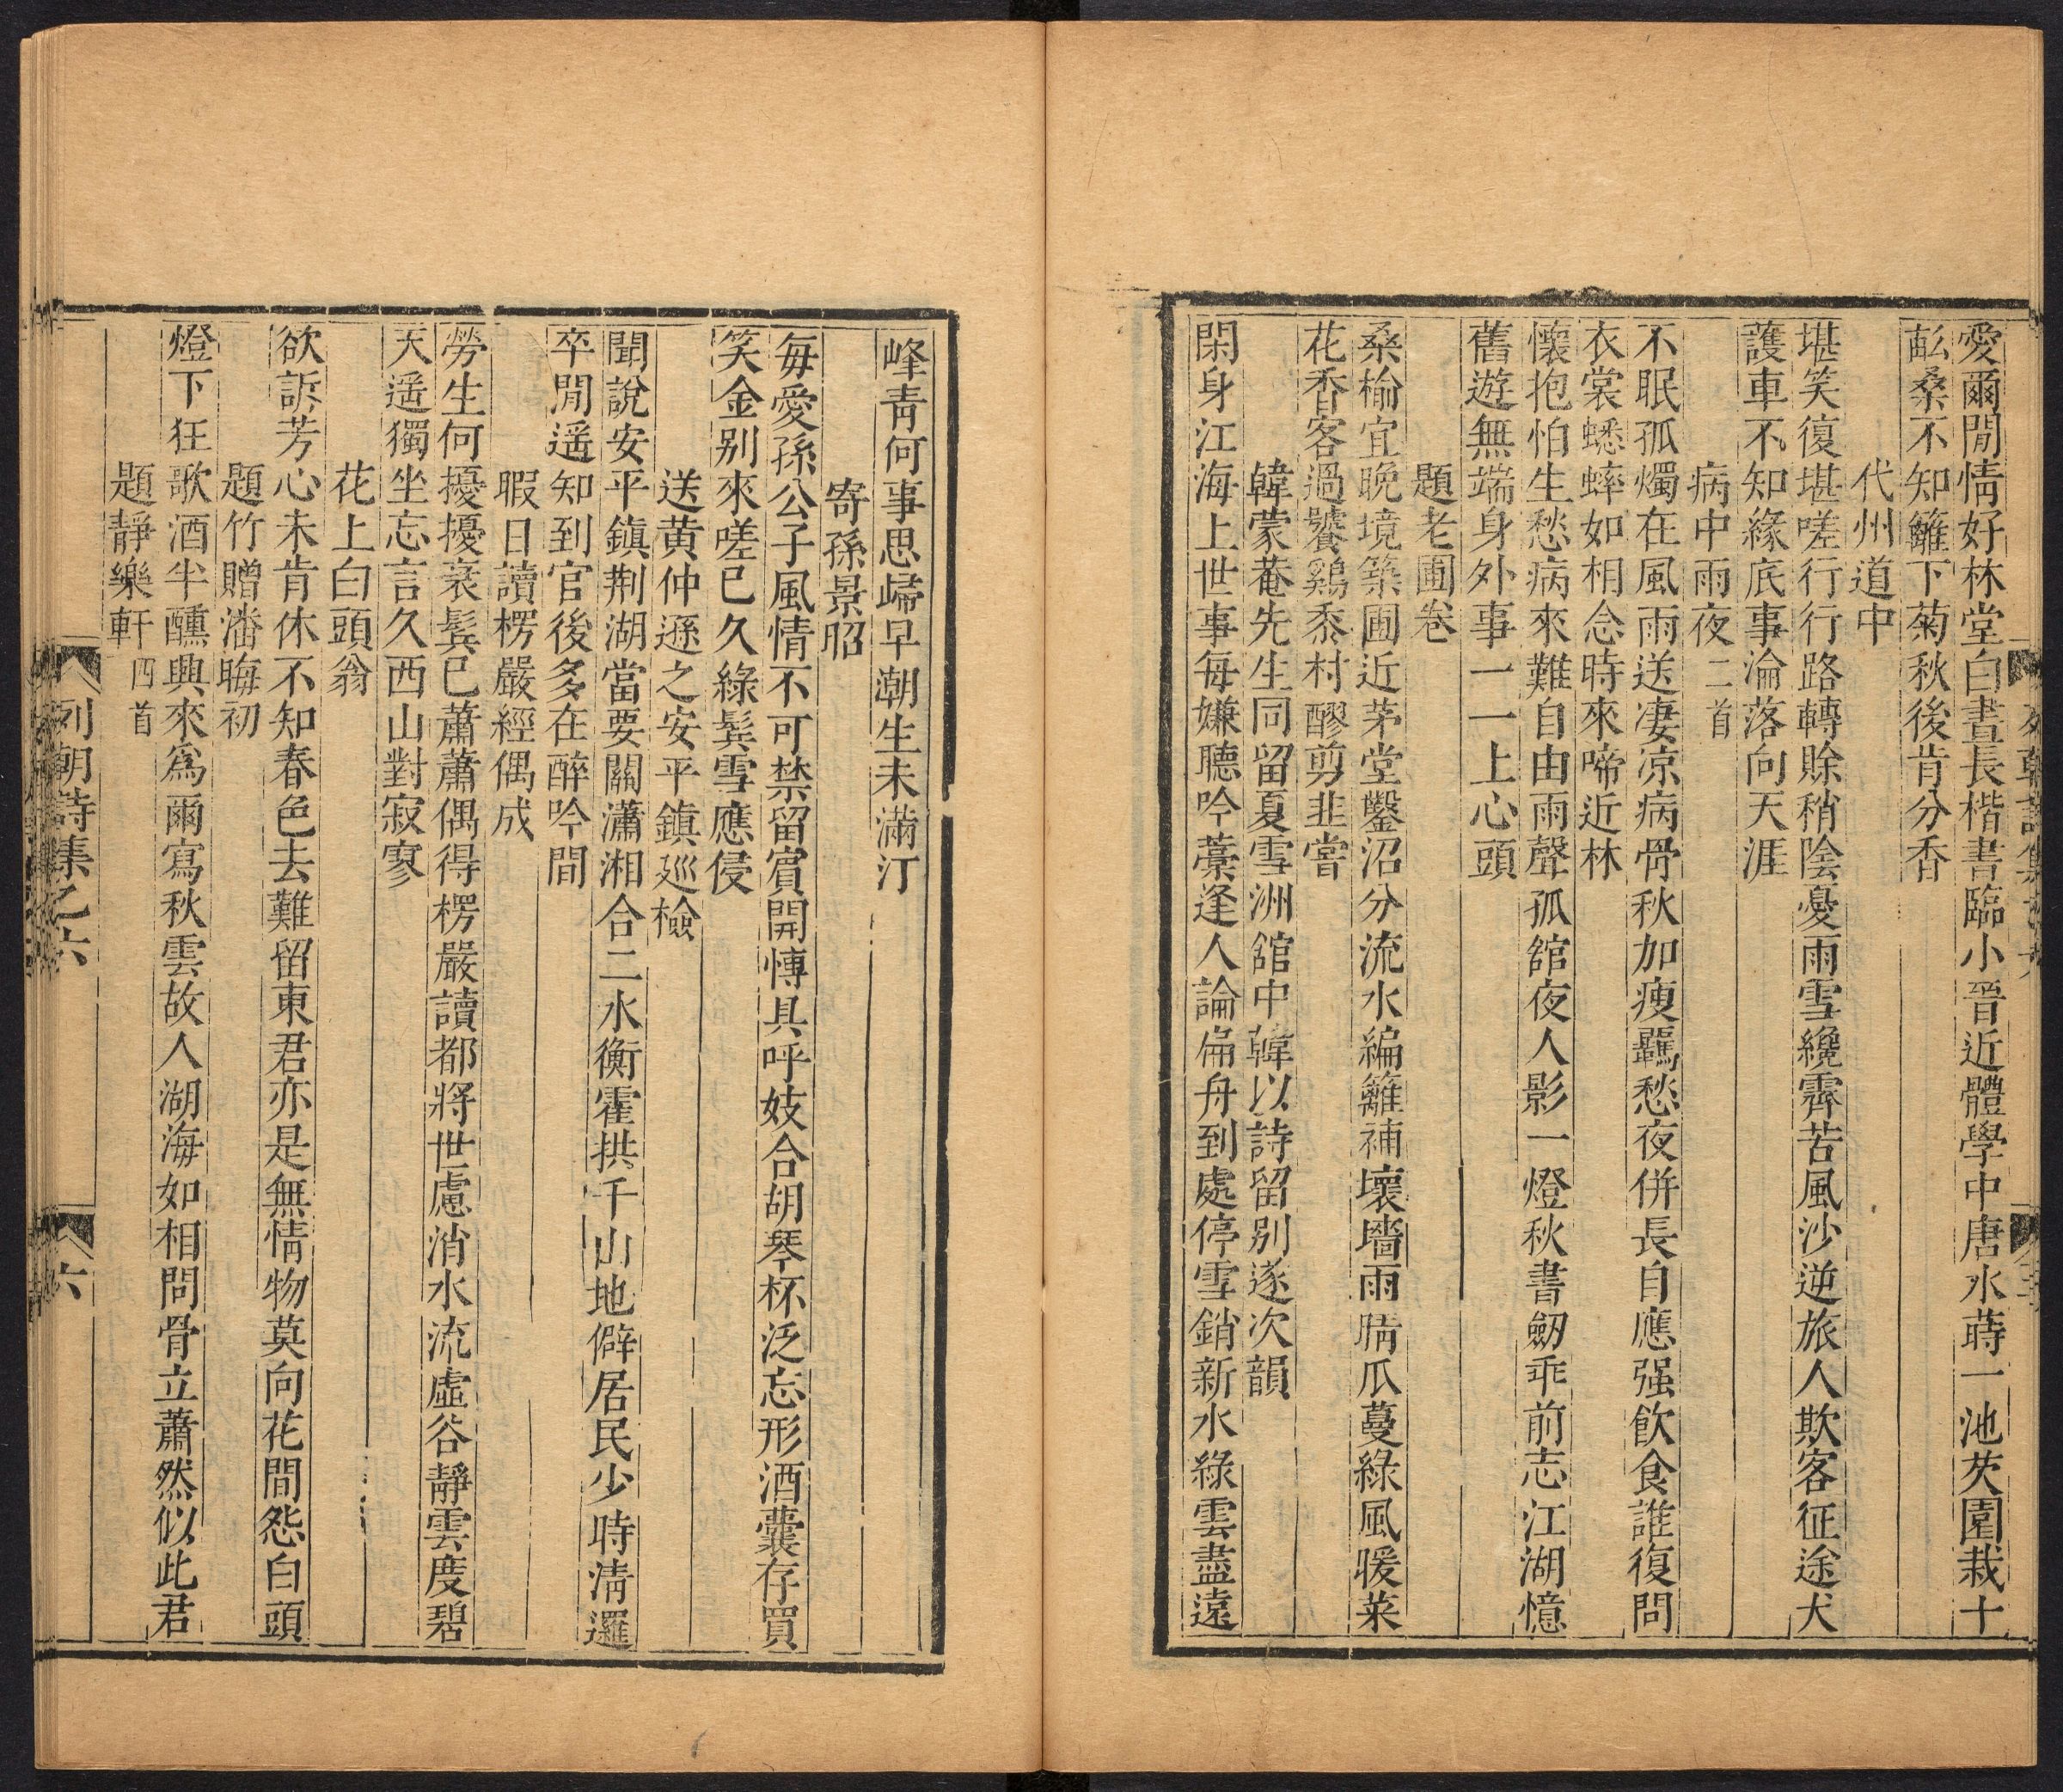 愛爾閒情好林堂白晝長楷書臨小晉近體學中唐水蒔一池芡園栽十
畝桑不知籬下菊秋後肯分香
代州道中
堪笑復堪嗟行行路轉賒稍陰憂雨雪纔霽苦風沙逆旅人欺客征途犬
護車不知緣底事淪落向天涯
病中雨夜二首
不眠孤燭在風雨送凄凉病骨秋加瘦羈愁夜併長自應强飲食誰復問
衣裳蟋蟀如相念時來啼近林
懷抱怕生愁病來難自由雨聲孤舘夜人影一燈秋書劒乖前志江湖憶
舊遊無端身外事一一上心頭
題老圃卷
桑榆宜晚境築圃近茅堂鑿沼分流水編籬補壞墻雨晴瓜蔓綠風暖菜
花香客過饕鷄黍村醪剪韭嘗
韓蒙菴先生同留夏雪洲舘中韓以詩留别遂次韻
閑身江海上世事每嫌聽吟藁逢人論扁舟到處停雪銷新水綠雲盡遠
峰青何事思歸早潮生未滿汀
寄孫景昭
每愛孫公子風情不可禁留賓開愽具呼妓合胡琴杯泛忘形酒囊存買
笑金别來嗟已久綠鬂雪應侵
送黄仲遜之安平鎮廵檢
聞說安平鎮荆湖當要關瀟湘合二水衡霍拱千山地僻居民少時清邏
卒閒遥知到官後多在醉吟間
暇日讀楞嚴經偶成
勞生何擾擾衰鬂已蕭蕭偶得楞嚴讀都將世慮消水流虛谷靜雲度碧
天遥獨坐忘言久西山對寂寥
花上白頭翁
欲訴芳心未肯休不知春色去難留東君亦是無情物莫向花間怨白頭
題竹贈潘晦初
燈下狂歌酒半醺興來爲爾寫秋雲故人湖海如相問骨立蕭然似此君
題靜樂軒四首
列朝詩集乙六
六